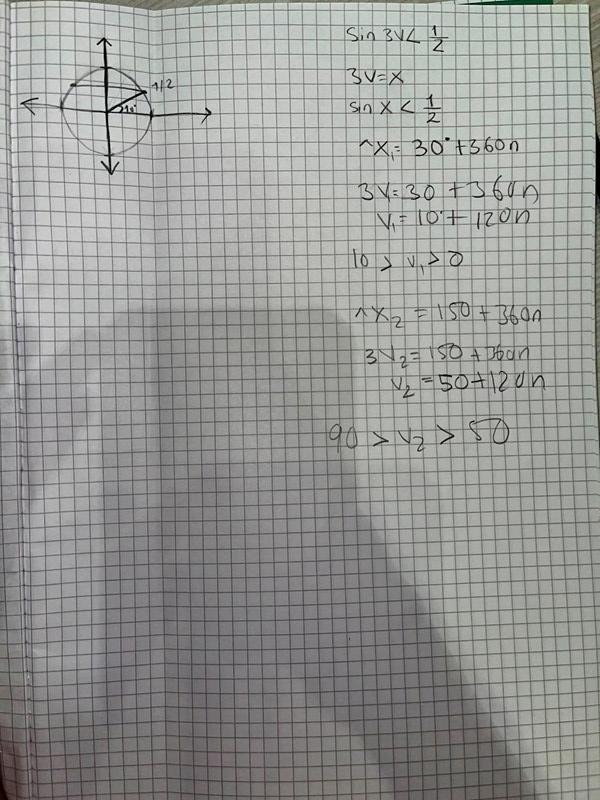 1/2
30°
sin 3v < 1/2
3v = x
sin x < 1/2
^x₁ = 30° + 360n
3v₁ = 30 + 360n
v₁ = 10° + 120n
10 > v₁ > 0
^x₂ = 150 + 360n
3v₂ = 150 + 360n
v₂ = 50 + 120n
90 > v₂ > 50